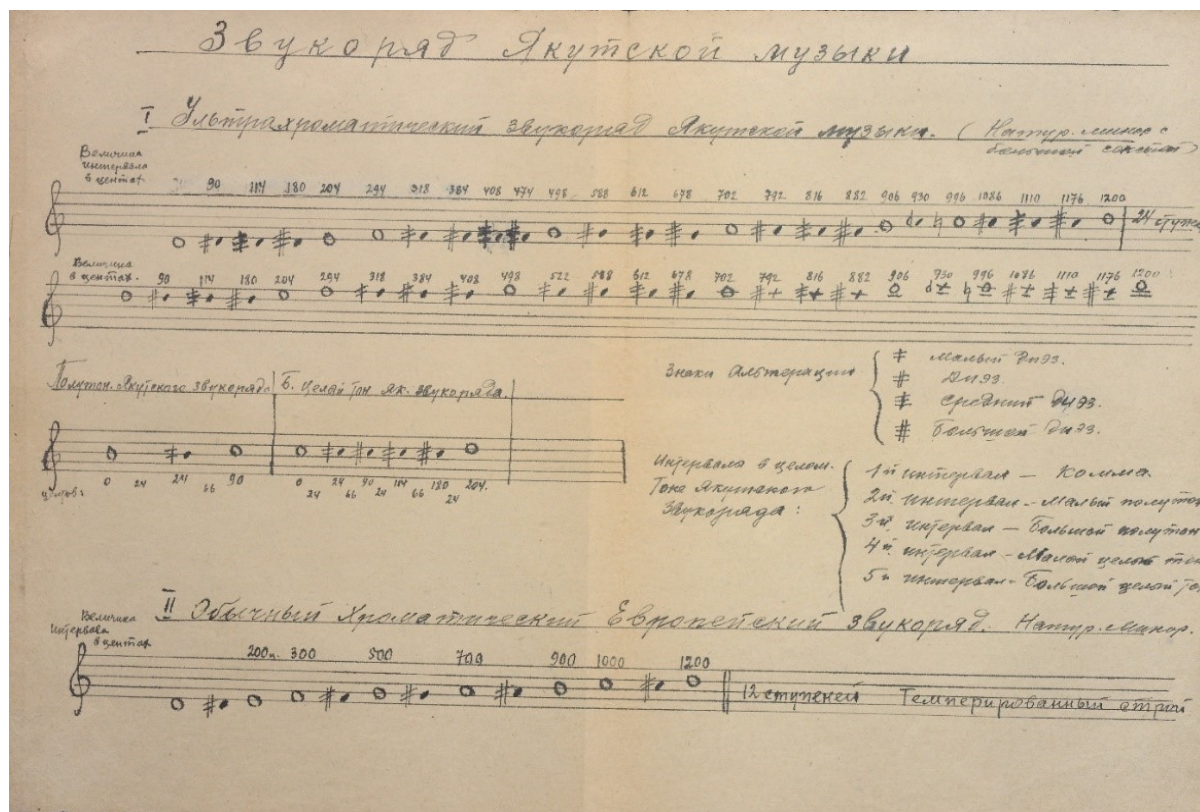 Звукоряд Якутской музыки
I Ультрахроматический звукоряд Якутской музыки. (Натур. минор с
большой секстой)
Величина
интервала
в центах
90 114 180 204 294 318 384 408 474 498 588 612 678 702 792 816 882 906 930 996 1086 1110 1176 1200
24 ступ
Величина
в центах.
90 114 180 204 294 318 384 408 498 522 588 612 678 702 792 816 882 906 930 996 1086 1110 1176 1200
Полутон. Якутского звукоряда
0 24 24 66 90
Б. Целой тон Як. звукоряда.
0 24 24 66 90 24 114 66 180 24 204.
Знаки Альтерации
малый диэз.
Диэз.
Средний диэз.
Большой диэз.
Интервалы в целом.
Тоне Якутского
Звукоряда:
1й интервал – Комма
2й интервал – Малый полутон
3й интервал – Большой полутон
4й интервал – Малой целой тон
5й интервал – Большой целой то
II Обычный Хроматический Европейский звукоряд. Натур. Минор.
Величина
Интервала
в центах
200ц. 300 500 700 900 1000 1200
12 ступеней Темперированный строй